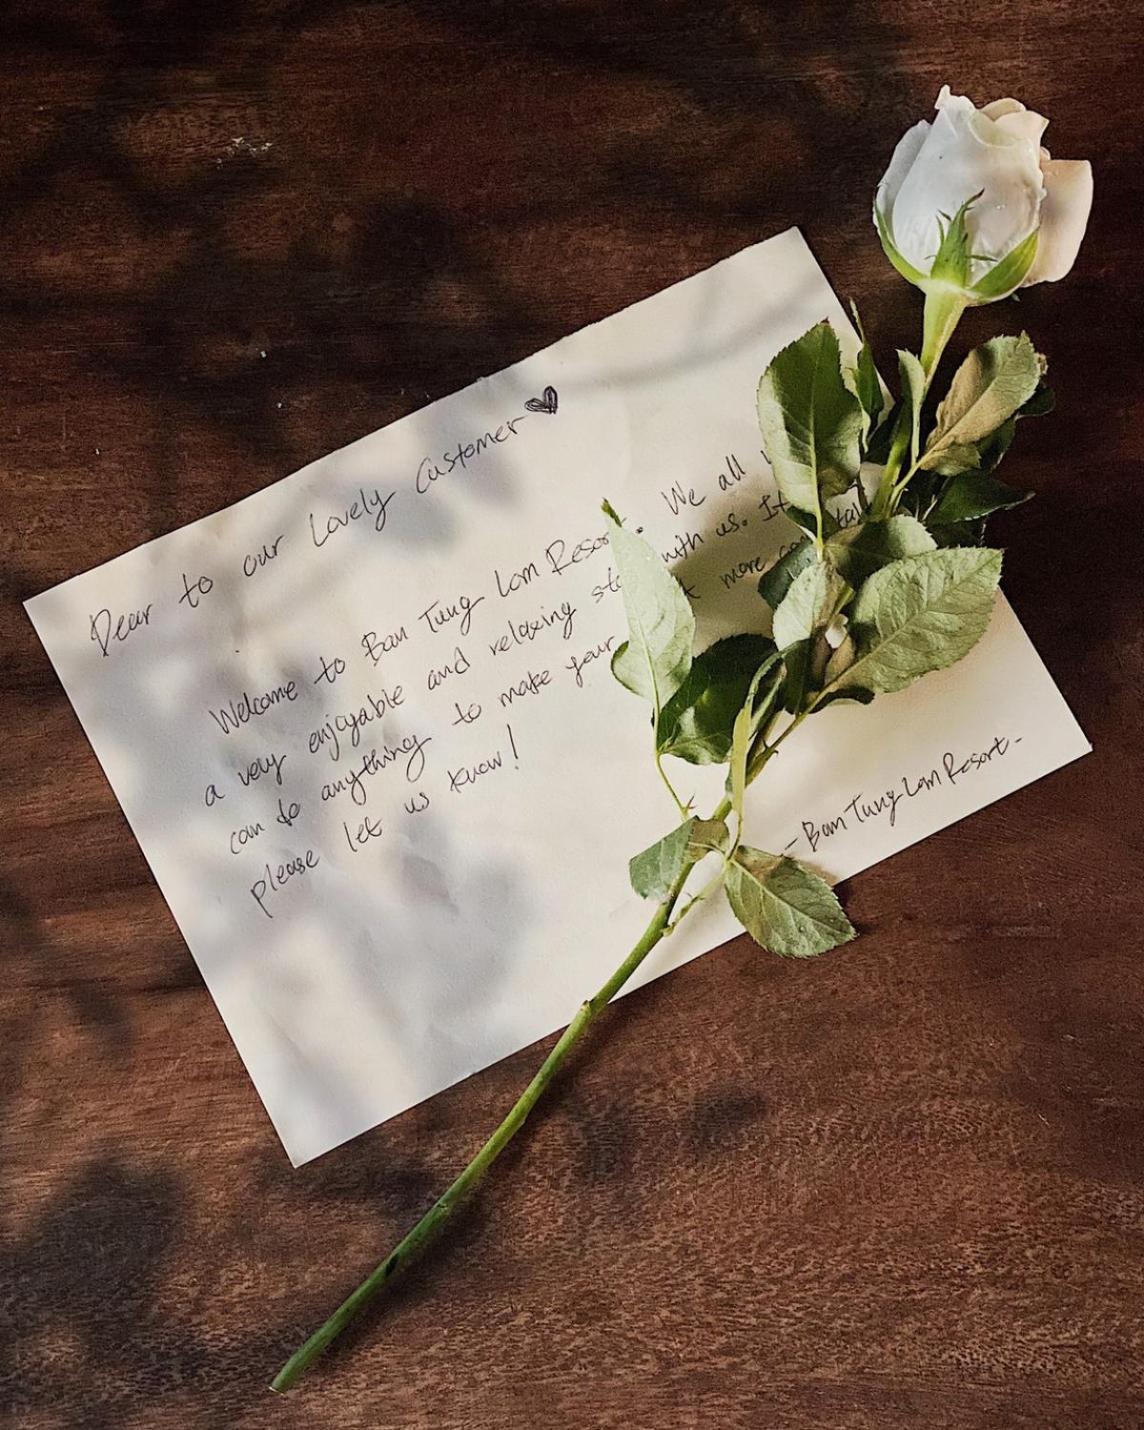 Dear to our Lovely Customer
Welcome to Ban Tung Lom Resort. We all
a very enjoyable and relaxing with us. If
can do anything to make your more
please let us know!
- Ban Tung Lom Resort -